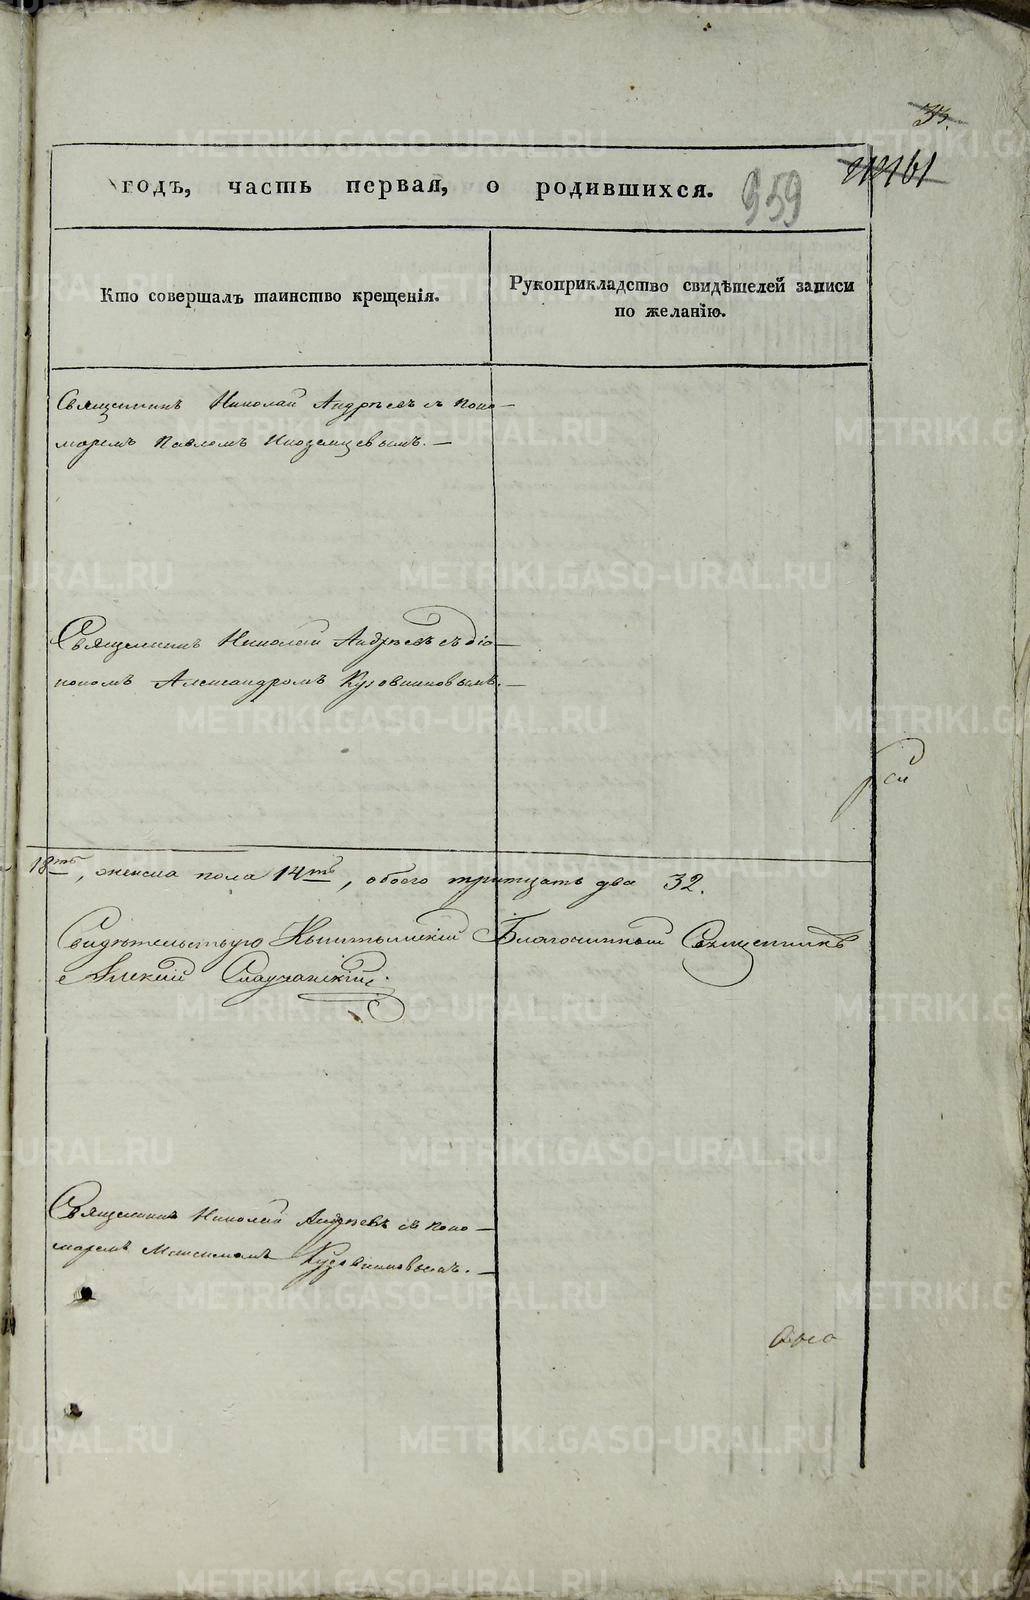 33.
959
годъ, часть первая, о родившихся.
Кто совершалъ таинство крещенія.
Рукоприкладство свидѣтелей записи
по желанію.
Священникъ Николай Андреевъ съ поно-
маремъ Павломъ Иноземцевымъ.-
Священникъ Николай Андреевъ съ діа-
кономъ Александромъ Кузовниковымъ.-
18ть, женска пола 14ть, обоего тритцать два 32.
Свидѣтельствую Кыштымскій Благочинный Священникъ
Алексій
Священникъ Николай Андреевъ съ поно-
маремъ Максимомъ Кузовниковымъ.-
METRIKI.GASO-URAL.RU